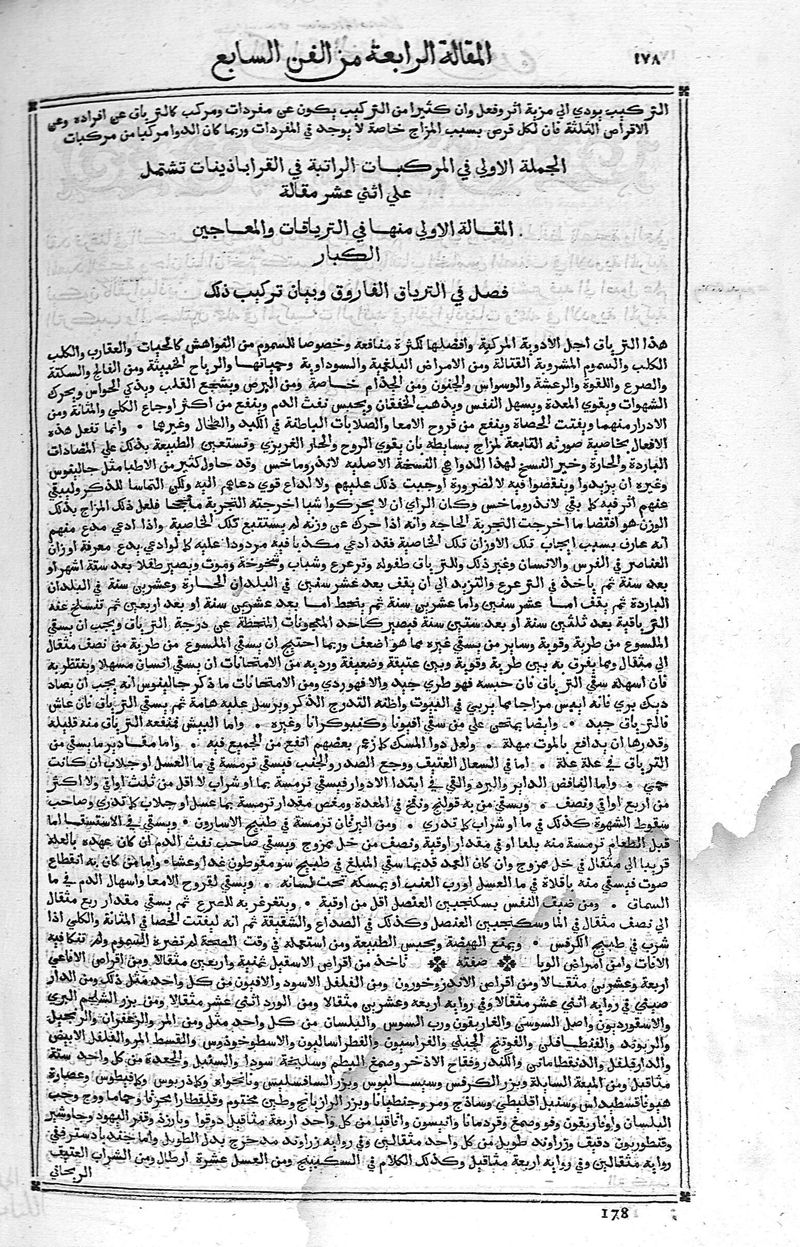 المقالة الرابعة من الفن السابع
١٧٨
التركيب يودي الي مزية اثر وفعل وان كثيرا من التركيب يكون عن مفردات ومركب كالترياق عن افراده وعن
الاقراص الثلثة فان لكل قرص بسبب المزاج خاصة لا يوجد في المفردات وربما كان الدوا مركبا من مركبات
الجملة الاولي في المركبات الراتبة في القراباذينات تشتمل
علي اثني عشر مقالة
المقالة الاولي منها في الترياقات والمعاجين
الكبار
فصل في الترياق الفاروق وبيان تركيب ذلك
هذا الترياق اجل الادوية المركبة وافضلها لكثرة منافعه وخصوصا للسموم من النواهش كالحيات والعقارب والكلب
الكلب والسموم المشروبة القتالة ومن الامراض البلغمية والسوداوية وحمياتها والرياح الخبيثة ومن الفالج والسكتة
والصرع واللقوة والرعشة والوسواس والجنون ومن الجذام خاصة ومن البرص ويشجع القلب ويذكي الحواس ويحرك
الشهوات ويقوي المعدة ويسهل النفس ويذهب الخفقان ويحبس نفث الدم وينفع من اكثر اوجاع الكلي والمثانة ومن
الادرار منهما ويفتت الحصاة وينفع من قروح الامعا والصلابات الباطنة في الكبد والطحال وغيرها • وانما تفعل هذه
الافعال بخاصية صورته التابعة لمزاج بسايطه بان يقوي الروح والحار الغريزي وتستعين الطبيعة بذلك علي المضادات
الباردة والحارة وخير النسخ لهذا الدوا هي النسخة الاصلية لاندروماخس وقد حاول كثير من الاطبا مثل جالينوس
وغيره ان يزيدوا وينقصوا فيه لا لضرورة اوجبت ذلك عليهم ولا لداع قوي دعاهم اليه ولكن التماسا للذكر وليبقي
عنهم اثر فيه كما بقي لاندروماخس وكان الراي ان لا يحركوا شيا اخرجته التجربة فلعل ذلك المزاج بذلك
الوزن هو اقتضا ما اخرجت التجربة وانه اذا حرك عن وزنه لم يستتبع تلك الخاصية واذا ادعي مدع منهم
انه عارف بسبب ايجاب تلك الاوزان تلك الخاصية فقد ادعي مكذبا فيه مردودا عليه كما لو ادعي مدع معرفة اوزان
العناصر في الفرس والانسان وغير ذلك وللترياق طفولة وترعرع وشباب وشيخوخة وموت ويصير طفلا بعد ستة اشهر او
بعد سنة ثم ياخذ في الترعرع والتزيد الي ان يقف بعد عشر سنين في البلدان الحارة وعشرين سنة في البلدان
الباردة ثم يقف اما عشر سنين واما عشرين سنة ثم ينحط اما بعد عشرين سنة او بعد اربعين ثم تنسلخ عنه
الترياقية بعد ثلثين سنة او بعد ستين سنة فيصير كاحد المعجونات المنحطة عن درجة الترياق ويجب ان يسقي
الملسوع من طرية وقوية وساير من يسقي غيره مما هو اضعف وربما احتيج ان يسقي الملسوع من طرية من نصف مثقال
الي مثقال ومما يفرق به بين طرية وقوية وبين عتيقة وضعيفة وردية من الامتحانات ان يسقي انسان مسهلا
فان اسهله سقي الترياق فان حبسه فهو طري جيد والا فهو ردي ومن الامتحانات ما ذكر جالينوس انه يجب ان يصاد
ديك بري فانه ايبس مزاجا مما يربي في البيوت واظنه التدرج الذكر ويرسل عليه هامة ثم يسقي الترياق فان عاش
فالترياق جيد • وايضا يمتحن علي من سقي افيونا وغيره • واما البيش فمنفعة الترياق منه قليلة
وقدرها ان يدافع بالموت مهلة • ولعل دوا المسك كما زعم بعضهم انفع من الجميع فيه • واما مقادير ما يسقي من
الترياق في علة علة • اما في السعال العتيق ووجع الصدر والجنب فيسقي ترمسة في ما العسل او جلاب ان كانت
حمي • واما النافض الداير والبرد والقي في ابتدا الادوار فيسقي ترمسة بما او شراب لا اقل من ثلث اواقي ولا اكثر
من اربع اواقي ونصف • ويسقي من به قولنج ونفخ في المعدة ومغص مقدار ترمسة بما عسل او جلاب وصاحب
سقوط الشهوة كذلك في ما او شراب • ومن اليرقان ترمسة في طبيخ الاسارون • ويسقي في الاستسقا اما
قبل الطعام ترمسة منه بلعا او في مقدار اوقية ونصف من خل ممزوج ويسقي صاحب نفث الدم ان كان عهده بالعلة
قريبا الي مثقال في خل ممزوج وان كان العهد قديما سقي المبلغ في طبيخ سومقوطون غدا وعشا • واما من كان به انقطاع
صوت فيسقي منه باقلاة في ما العسل او رب العنب او يمسكه تحت لسانه • ويسقي لقروح الامعا واسهال الدم في ما
السماق • ومن ضيق النفس بسكنجبين العنصل اقل من اوقية • ويتغرغر به للصرع ثم يسقي مقدار ربع مثقال
الي نصف مثقال في الما وسكنجبين العنصل وكذلك في الصداع والشقيقة ثم انه ليفتت الحصا في المثانة والكلي اذا
شرب في طبيخ الكرفس • ويمنع الهيضة ويحبس الطبيعة ومن استعمله في وقت الصحة لم تضره السموم ولم تنكا فيه
الافات وامن امراض الوبا ❋ صفته ❋ تاخذ من اقراص الاسقيل ثمنية واربعين مثقالا ومن اقراص الافاعي
اربعة وعشرين مثقالا ومن اقراص الاندروخورون ومن الفلفل الاسود والافيون من كل واحد مثل ذلك ومن الدار
صيني في رواية اثني عشر مثقالا وفي رواية اربعة وعشرين مثقالا ومن الورد اثني عشر مثقالا ومن بزر الشلجم البري
والاسقورديون واصل السوسن والغاريقون ورب السوس والبلسان من كل واحد مثل ومن المر والزعفران والزنجبيل
والريوند والفنطافلن والفوتنج الجبلي والفراسيون والفطراساليون والاسطوخودوس والقسط المر والفلفل الابيض
والدارفلفل والكندر وفقاح الاذخر وصمغ البطم وسليخة سودا والسنبل والجعدة من كل واحد ستة
مثاقيل ومن الميعة السايلة وبزر الكرفس وسيساليوس وبزر السافسليس ونانخواه وكمادريوس وكمافيطوس وعصارة
هيوفاقسطيداس وسنبل اقليطي وساذج ومر وجنطيانا وبزر الرازيانج وطين مختوم وقلقطارا محرقا وحماما ووج وحب
البلسان وهوفاريقون وفو وصمغ وقردمانا وانيسون واقاقيا من كل واحد اربعة مثاقيل دوقوا وبارزد وقفر اليهود وجاوشير
وقنطوريون دقيق وزراوند طويل من كل واحد مثقالين وفي رواية زراوند مدحرج بدل الطويل واما جندبادستر ففي
رواية مثقالين وفي رواية اربعة مثاقيل وكذلك الكلام في السكبينج ومن العسل عشرة ارطال ومن الشراب العتيق
الريحاني
178